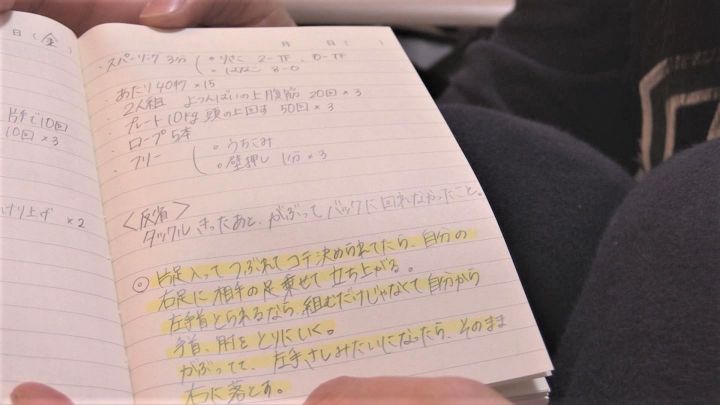 日(金)
片手で10回
10回 × 3
けり上げ ×2
月 日( )
・スパーリング 3分 ( 。りこ 2-TF、0-TF
。はなこ 3-0
・あたり 40秒 ×15
・2人組 よつんばいの上腹筋 20回 × 3
・プレート 10kg 頭の上回す 50回 × 3
・ロープ 5本
・フリー ( 。うちこみ
。壁押し 1分 × 3
<反省>
タックルきったあと、がぶってバックに回れなかったこと。
◎片足入ってつぶれてコテ決められてたら、自分の
右足に相手の足乗せて立ち上がる。
左手首とられるなら、組むだけじゃなくて自分から
手首、肘をとりにいく。
がぶってて、左手さしみたいになったら、そのまま
右に落とす。